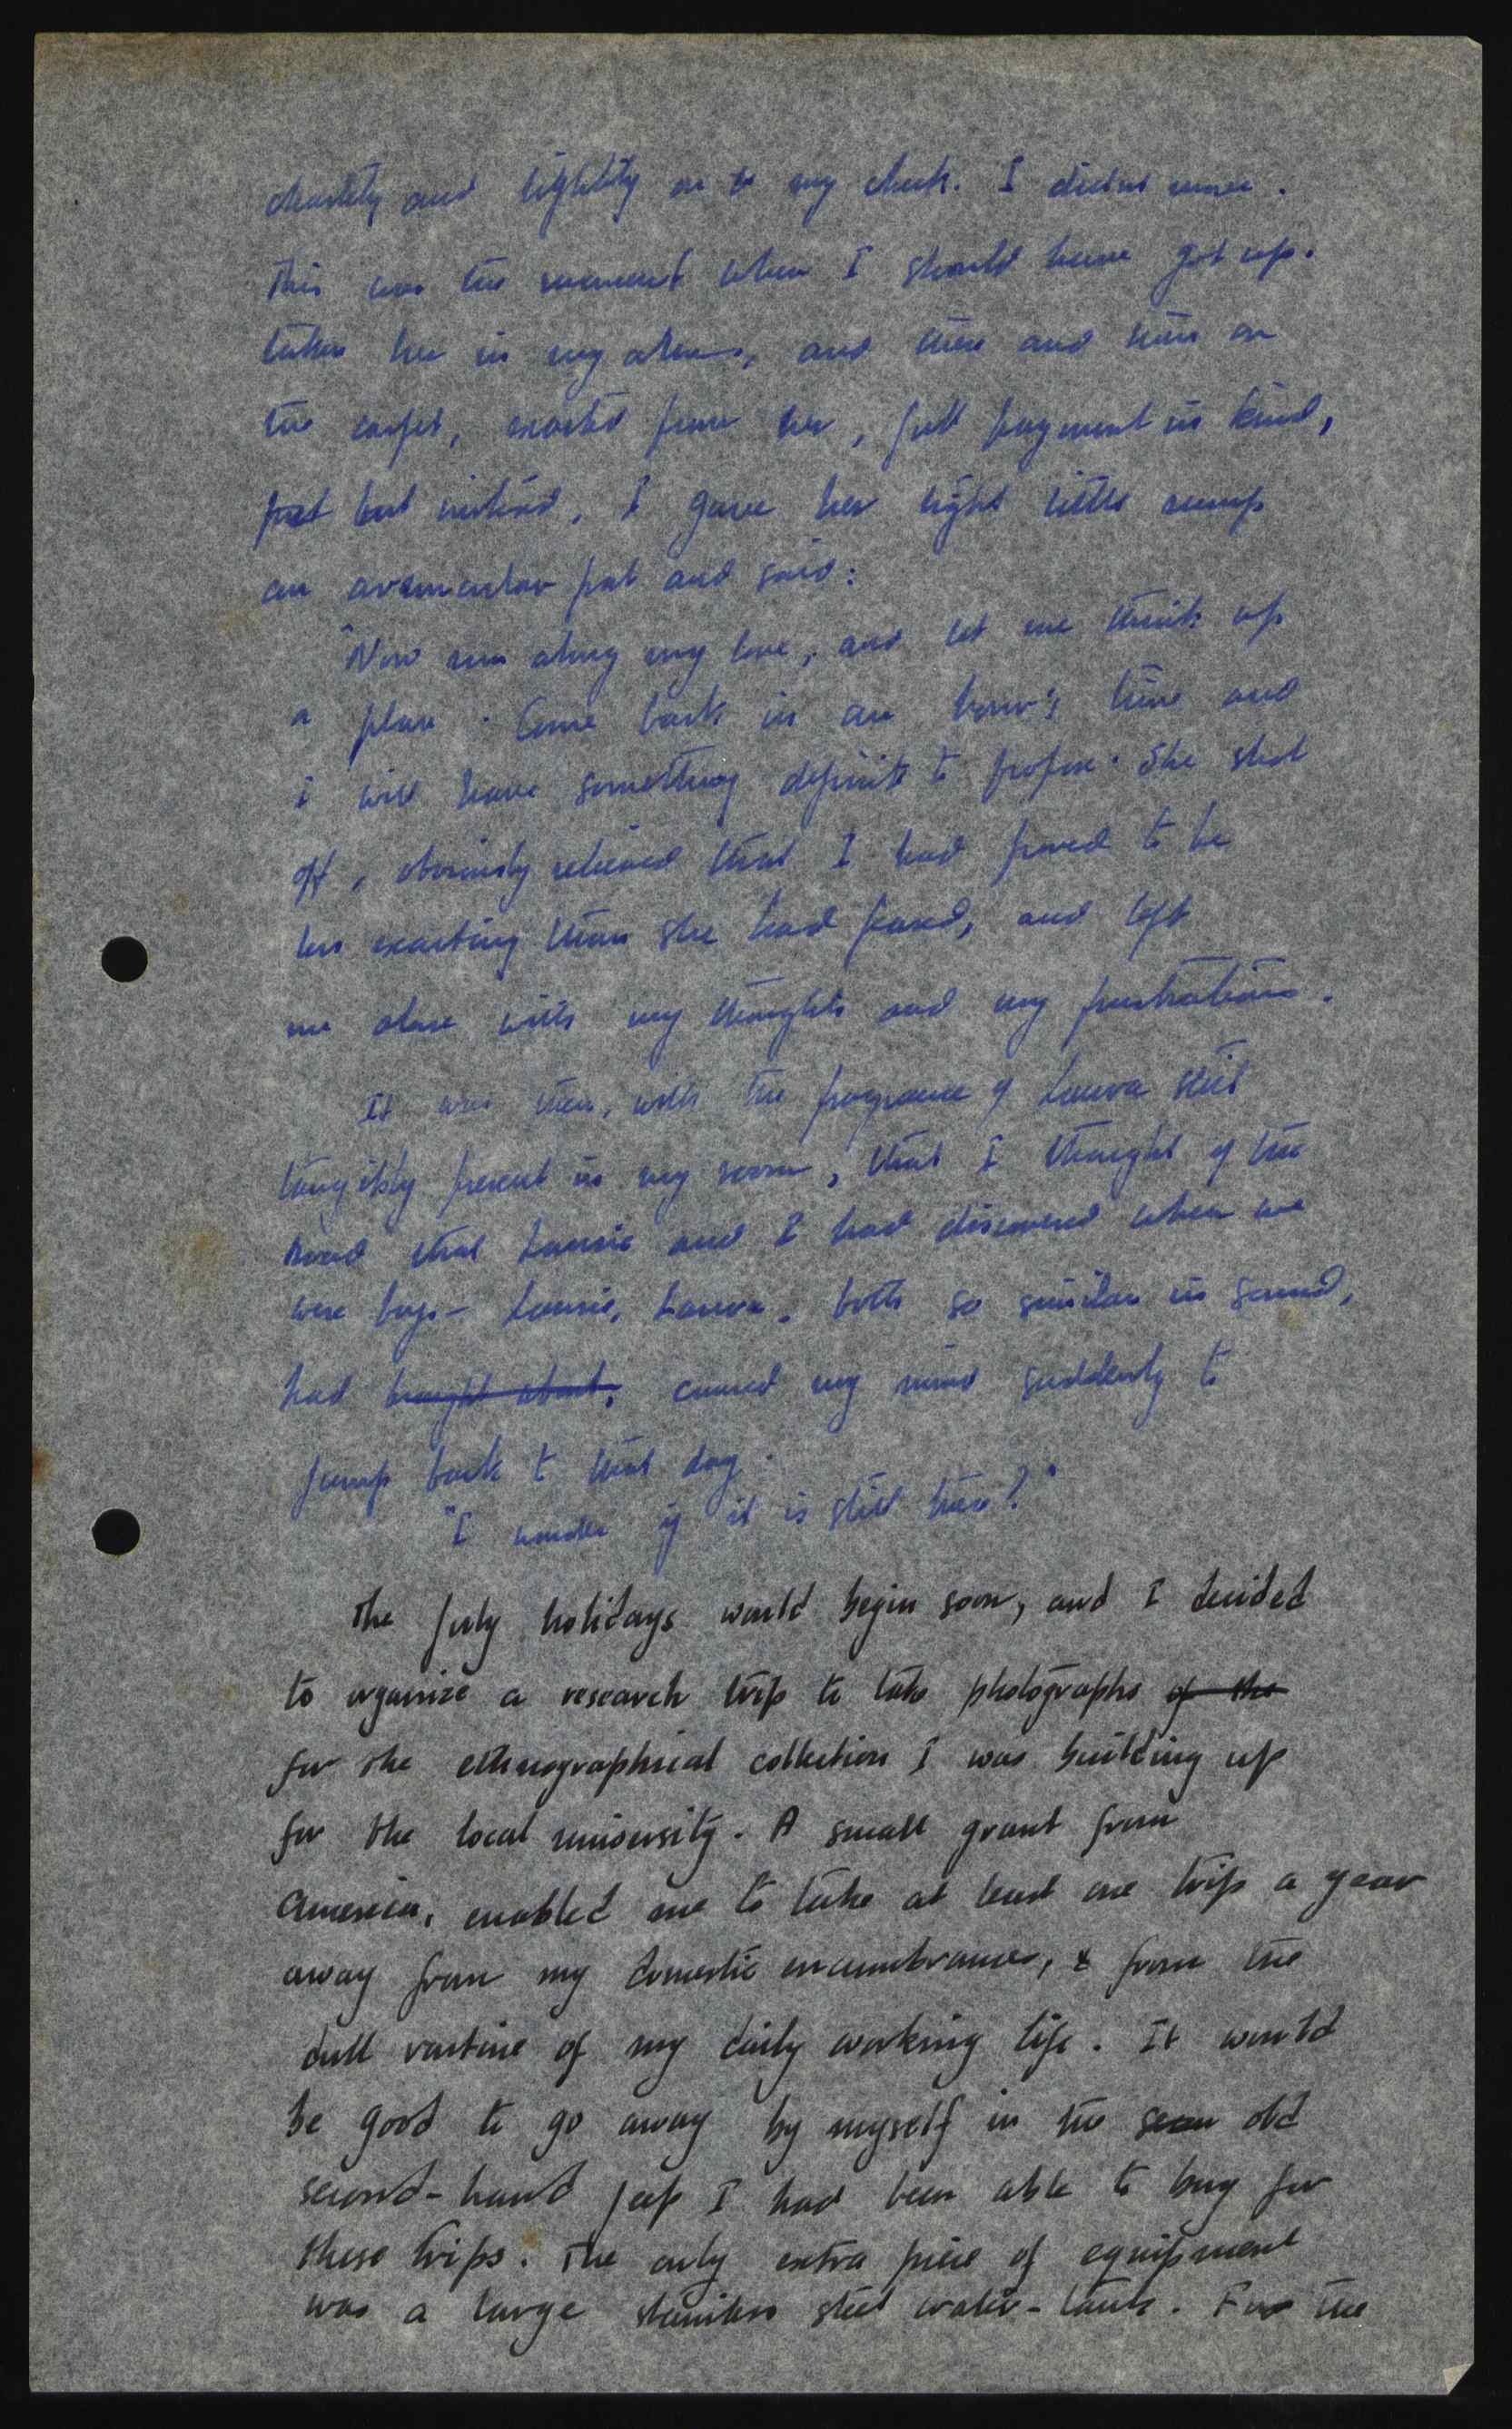 chastely and lightly on to my cheek. I did not move.
This was the moment when I should have got up.
taken her in my arms, and there and then on
the carpet, exacted from her, full payment in kind,
but instead, I gave her tight little rump
an avuncular pat and said:
"Now run along my love, and let me think up
a plan. Come back in an hour's time and
I will have something definite to propose. She shot
off, obviously relieved that I had proved to be
less exacting than she had feared, and left
me alone with my thoughts and my frustrations.
It was then, with the fragrance of Laura still
tangibly present in my room, that I thought of the
that Laurie and I had discovered when we
were boys - Laurie, Laura, both so similar in sound,
had brought about, caused my mind suddenly to
jump back to that day.
"I wonder if it is still there?"
The July holidays would begin soon, and I decided
to organize a research trip to take photographs of the
for the ethnographical collection I was building up
for the local university. A small grant from
America, enabled me to take at least one trip a year
away from my domestic encumbrances, & from the
dull routine of my daily working life. It would
be good to go away by myself in the old
second-hand jeep I had been able to buy for
these trips. The only extra piece of equipment
was a large stainless steel water-tank. For the